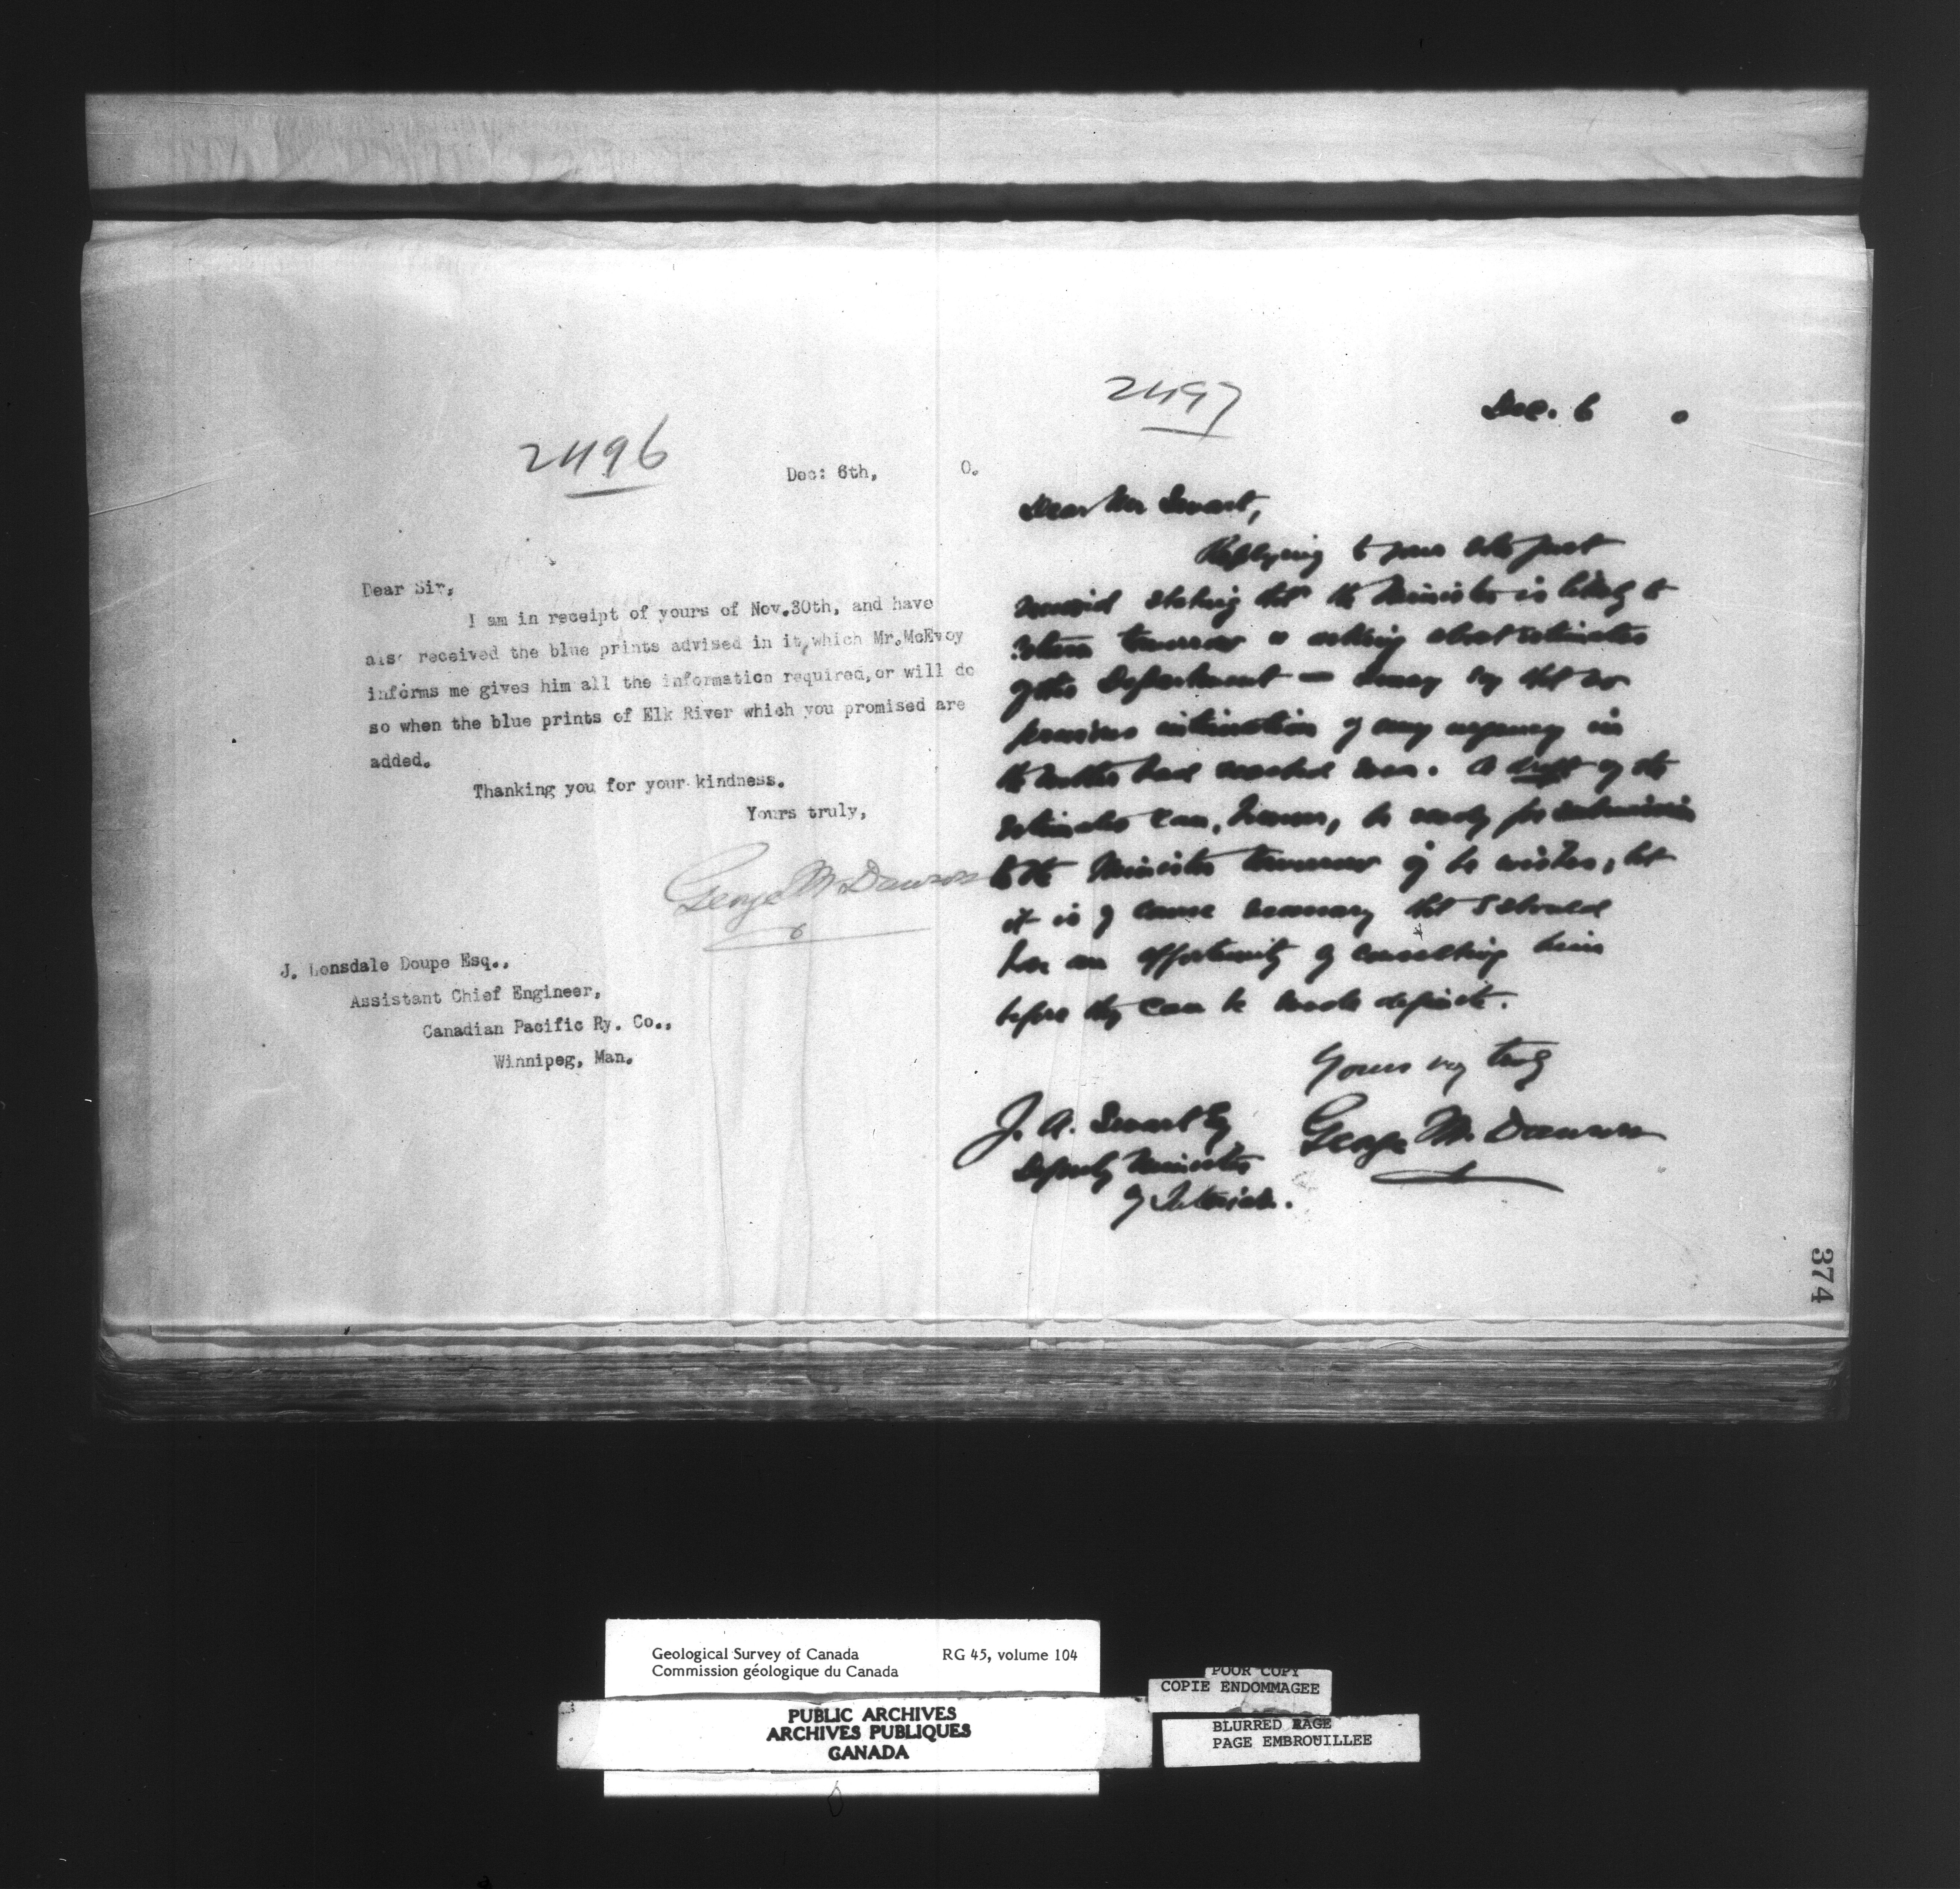 2496
Dec: 6th, 0.
Dear Sir,
I am in receipt of yours of Nov.30th, and have
also received the blue prints advised in it, which Mr.McEvoy
informs me gives him all the information required, or will do
so when the blue prints of Elk River which you promised are
added.
Thanking you for your kindness.
Yours truly,
George M. Dawson
J. Lonsdale Doupe Esq.,
Assistant Chief Engineer,
Canadian Pacific Ry. Co.,
Winnipeg, Man.
2497
Dec. 6 0
Dear Mr Smart,
Replying to your note just
received stating that the Minister is likely to
return tomorrow & asking about estimates
of this Department — I may say that no
previous intimation of any urgency in
the matter had reached me. A draft of the
estimates can, however, be ready for submission
to the Minister tomorrow if he wishes, but
it is of course necessary that I should
have an opportunity of consulting him
before they can be made definite.
Yours very truly
George M. Dawson
J. A. Smart Esq
Deputy Minister
of Interior.
374
Geological Survey of Canada RG 45, volume 104
Commission géologique du Canada
PUBLIC ARCHIVES
ARCHIVES PUBLIQUES
CANADA
POOR COPY
COPIE ENDOMMAGEE
BLURRED PAGE
PAGE EMBROUILLEE